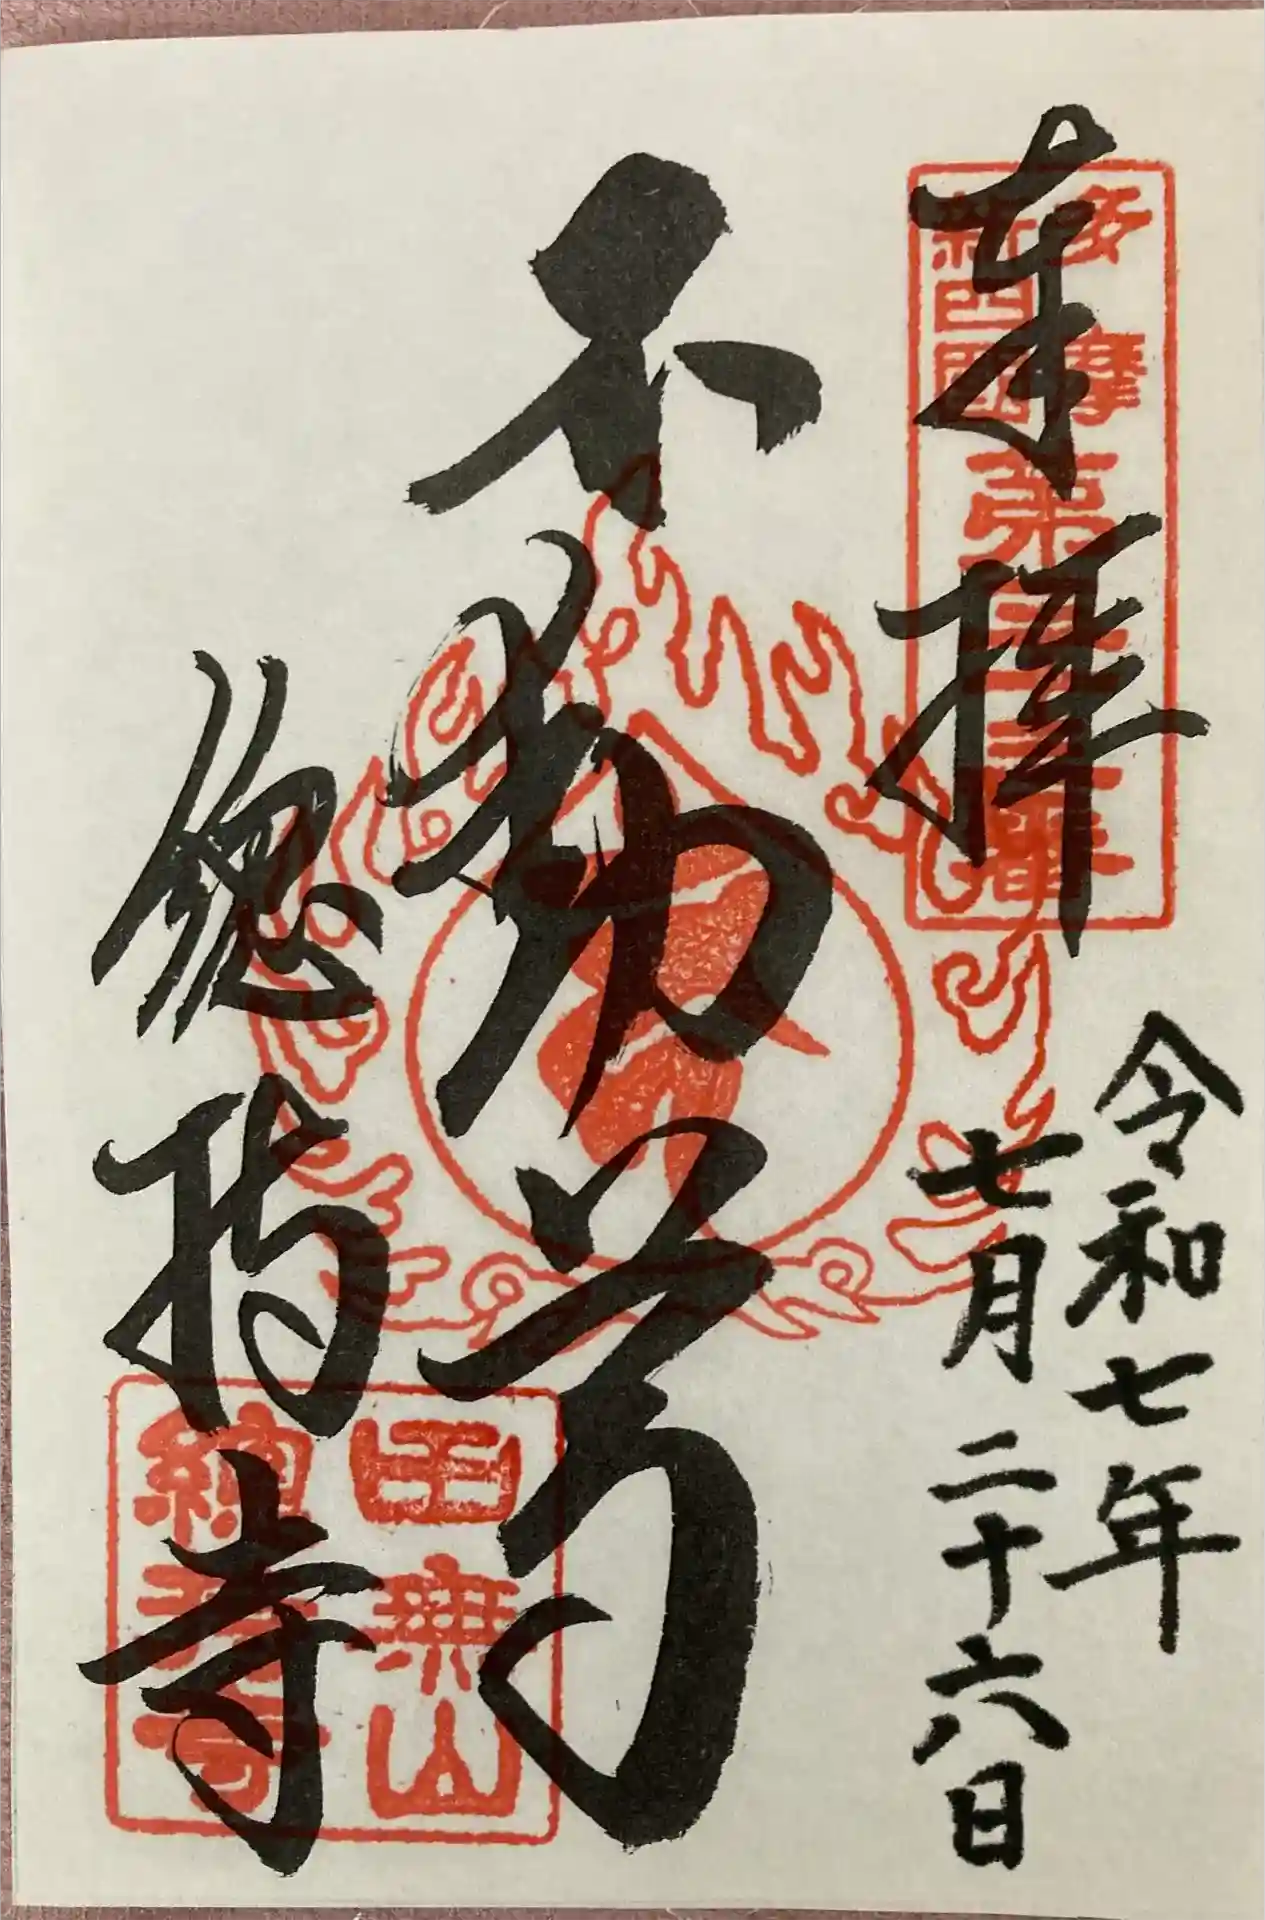 奉拝
多摩
新四国
第三十三番
令和七年
七月二十六日
不動尊
總持寺
田無山
總持寺